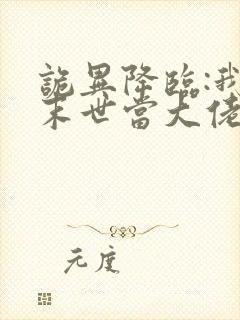 詭異降臨:我
末世當大佬
元度